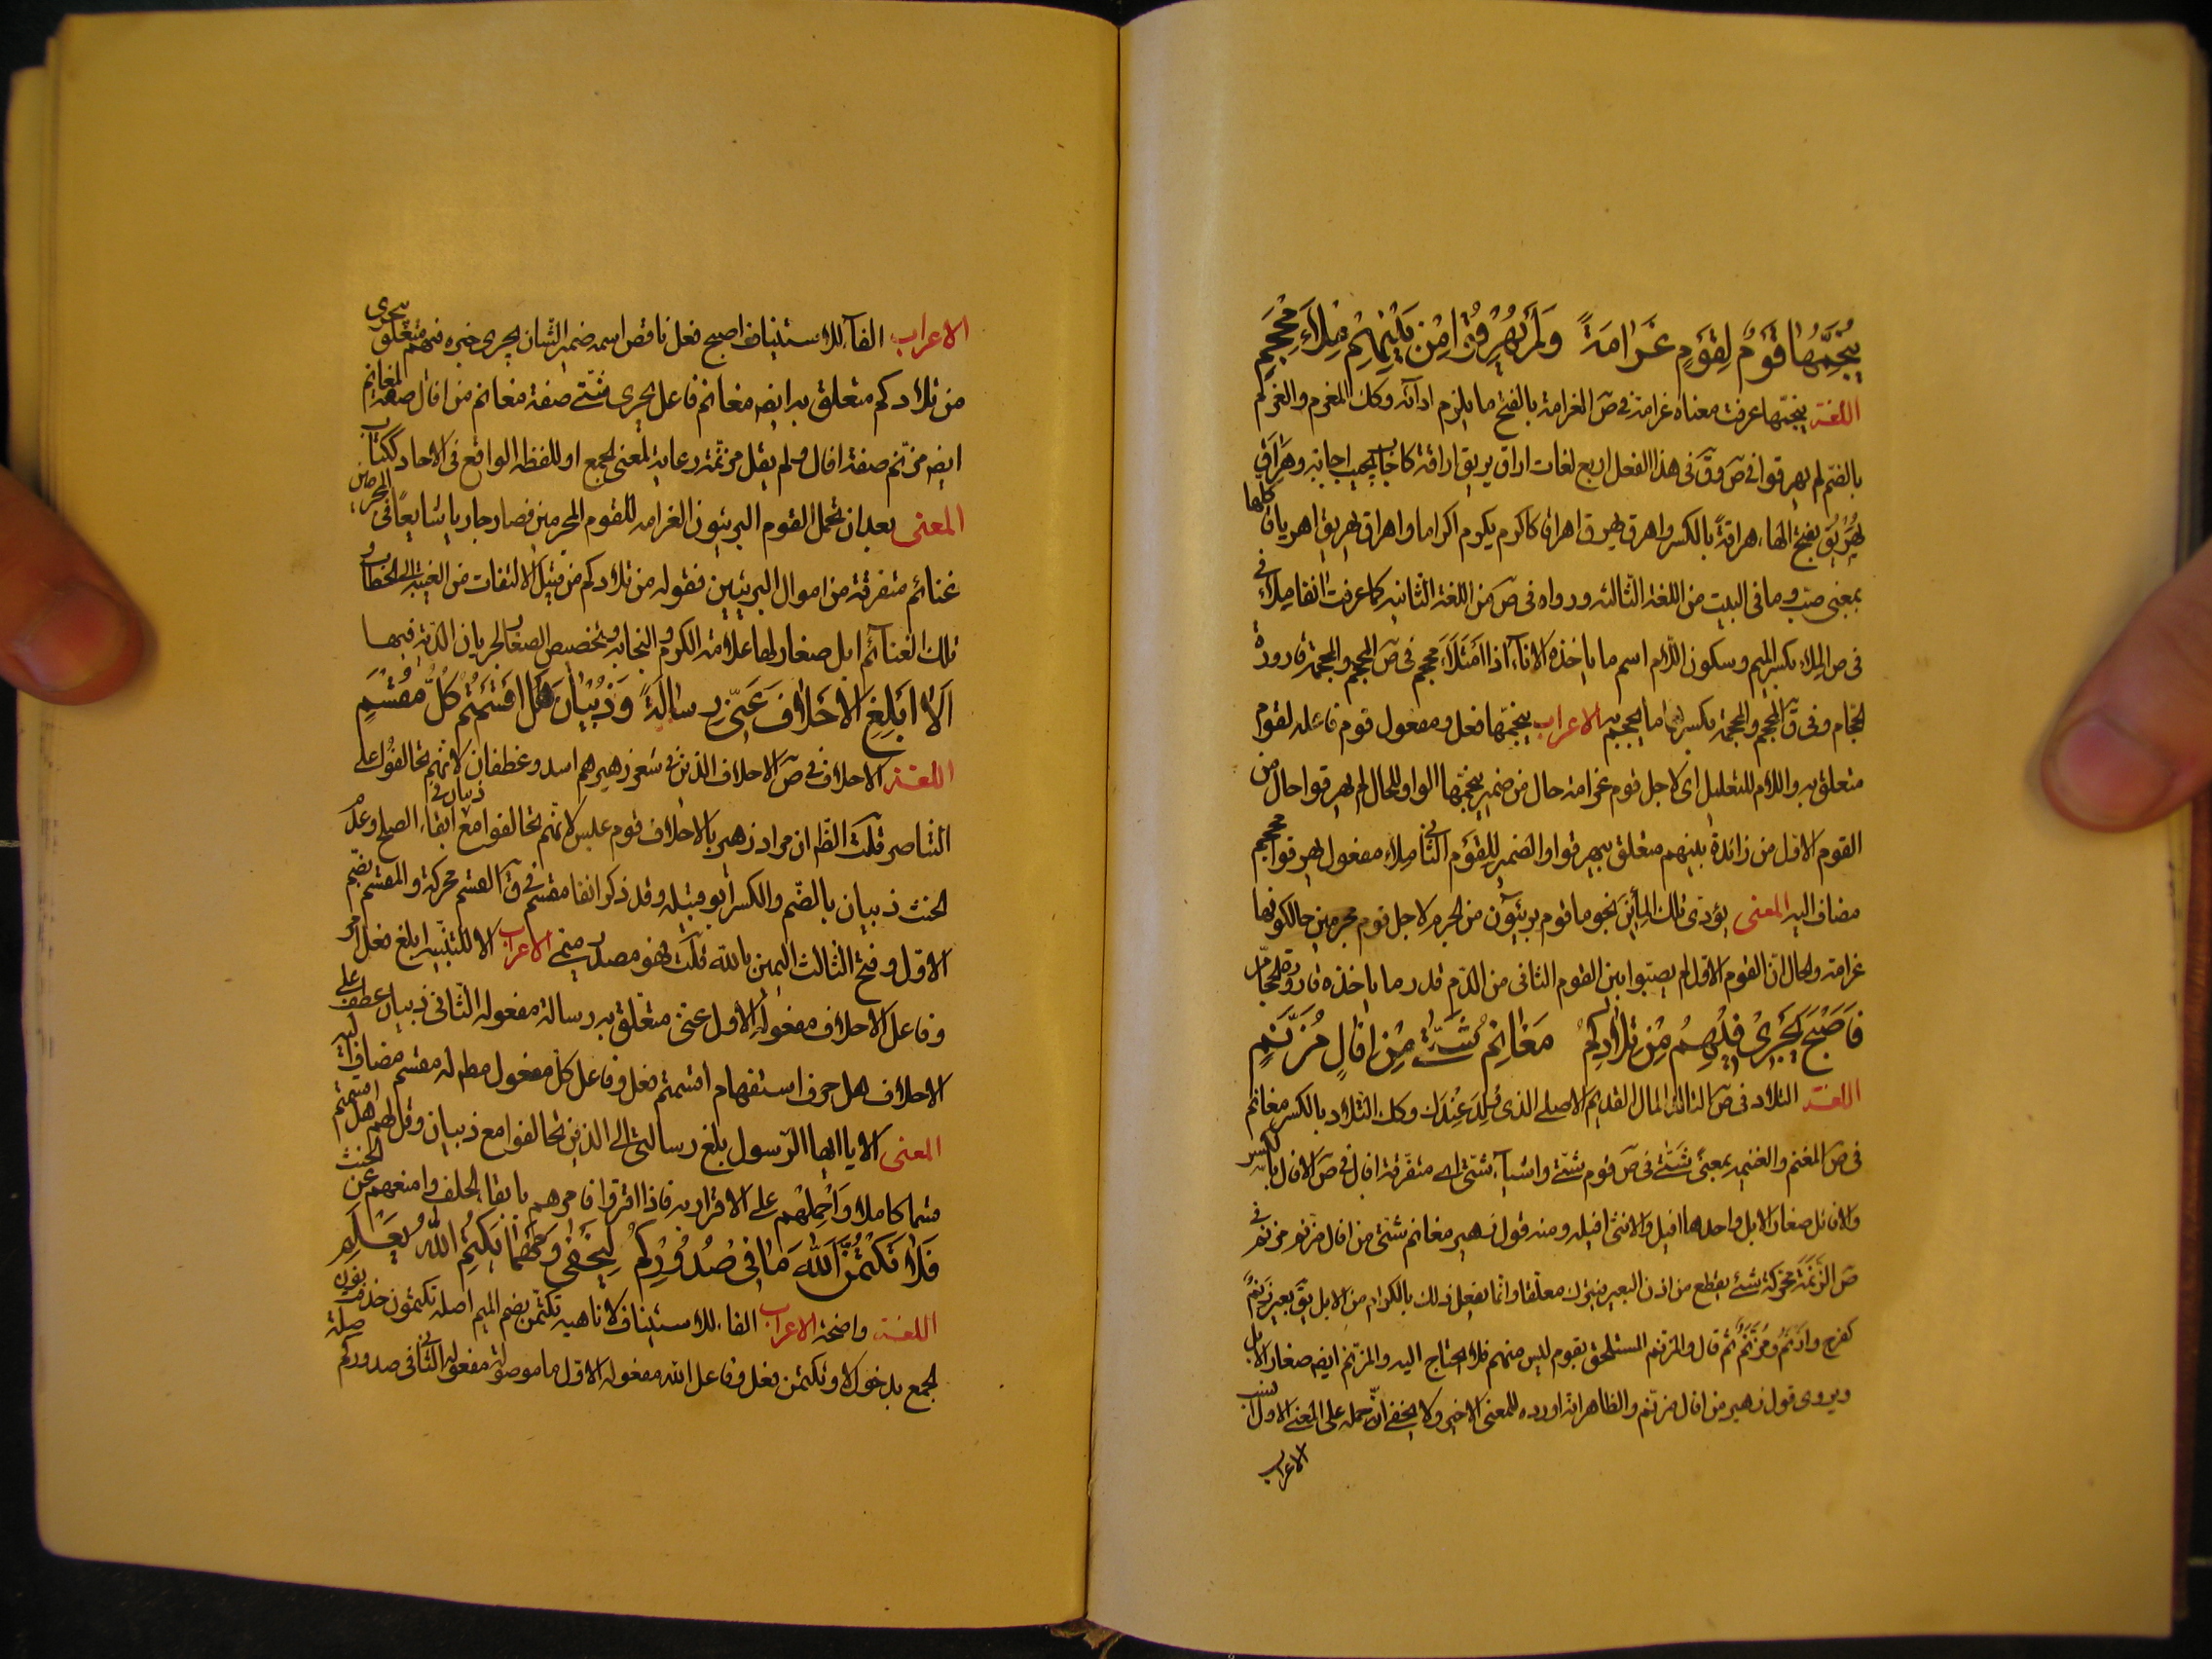 يُنَجِّمُهَا قَوْمٌ لِقَوْمٍ غَرَامَةً وَلَمْ يُهَرِيقُوا مِنْ بَيْنِهِمْ مِلْاءَ مِحْجَمِ
اللغة ينجمها عرفت معناه غرامة في ص الغرامة بالفتح ما يلزم ادآئه وكك المغرم والغرم
بالضم لم يهرقوا في ص وق في هذا الفعل اربع لغات اراق يريق اراقة كاجاب يجيب اجابة وهراق
يُهَرِيقُ بفتح الهاء هراقةً بالكسر واهرق يهرق اهراقا كاكرم يكرم اكراما واهراق يهريق اهرياقا كلها
بمعنى صب وما في البيت من اللغة الثالثه ورواه في ص من اللغة الثانيه كما عرفت انفا مِلْاءَ في
ص الملاء بكسر الميم وسكون اللام اسم ما ياخذه الاناء اذا امتلاء محجم في ص المحجم والمحجمة قارورة
الحجام وفي ق المحجم والمحجمة بكسرهما ما يحجم به الاعراب ينجمها فعل ومفعول قوم فاعله لقوم
متعلق به واللام للتعليل اى لاجل قوم غرامة حال من ضمير ينجمها الواو للحال لم يهرقوا حال من
القوم الاول من زائدة بينهم متعلق بيهرقوا والضمير للقوم الثاني ملاء مفعول يهرقوا محجم
مضاف اليه المعنى يؤدى تلك المأين نجوما قوم بريئون من الجرم لاجل قوم مجرمين حالكونها
غرامة والحال ان القوم الاول لم يصبوا بين القوم الثاني من الدم قدر ما ياخذه قارورة الحجام
فَاَصْبَحَ يَجْرِىْ فِيْهِمُ مِنْ تِلْادِكُمْ مَغَانِمُ شَتّٰى مِنْ اِفَالٍ مُزَنَّمِ
اللغة التلاد في ص التالد المال القديم الاصلى الذى وُلِدَ عِنْدَك وكك التلاد بالكسر مغانم
في ص المغنم والغنيمه بمعنى شَتّٰى في ص قوم شتى واشياء شتى اى متفرقة افال في ص الافال بالكسر
والافائل صغار الابل واحدها افيل والانثى افيله ومنه قول زهير مغانم شتى من افال مزنم مزنم في
ص الزَّنَمَةُ محركة شئ يقطع من اذن البعير فيترك معلقا وانما يفعل ذلك بالكرام من الابل يق بعير زَنِمٌ
كفرح وازنم ومُزَنَّمٌ ثم قال والمزنم المستلحق بقوم ليس منهم فلا يحتاج اليه والمزنم ايضا صغار الابل
ويروى قول زهير من افال مزنم والظاهر انه اورده للمعنى الاخير ولا يخفى ان حمله على المعنى الاول انسب
الاعراب
الاعراب الفاء للاستيناف اصبح فعل ناقص اسمه ضمير الشان يجرى خبره فيهم متعلق بيجرى
من تلادكم متعلق به ايضا مغانم فاعل يجرى شتى صفة مغانم من افال صفة المغانم
ايضا مزنم صفة افال ولم يقل مزنمة رعاية لمعنى الجمع او للفظه الواقع في الاحاد ككتاب
المعنى بعد ان تحمل القوم البريئون الغرامه للقوم المجرمين فصار جاريا شايعًا في المجرمين
غنائم متفرقة من اموال البريئين فقوله من تلادكم من قبيل الالتفات من الغيبة الى الخطاب و
تلك الغنآئم ابل صغار لها علامة الكرم والنجابة وتخصيص الصغار لجريان الدية فيها
اَلَا اَبْلِغِ الْاَحْلَافَ عَنّى رِسَالَةً وَذُبْيَانَ هَلْ اَقْسَمْتُمْ كُلَّ مُقْسَمِ
اللغة الاحلاف في ص الاحلاف الذين في شعر زهير هم اسد وغطفان لانهم تحالفوا على
التناصر قلت الظ ان مراد زهير بالاحلاف قوم عليس لانهم تحالفوا مع ذبيان في ابقاء الصلح وعدم
الحنث ذبيان بالضم والكسر ابو قبيله وقد ذكر انفا مقسم في ق القسم محركة والمقسم بضم
الاول وفتح الثالث اليمين بالله قلت فهو مصدر ميمى الاعراب الا للتنبيه ابلغ فعل امر
وفاعل الاحلاف مفعوله الاول عنى متعلق به رسالة مفعوله الثانى ذبيان عطف على
الاحلاف هل حرف استفهام اقسمتم فعل وفاعل كل مفعول مط له مقسم مضاف اليه
المعنى الا يا ايها الرسول بلغ رسالتى الى الذين تحالفوا مع ذبيان وقل لهم هل اقسمتم
قسما كاملا وَاحْمِلْهم على الاقرار به فاذا اقروا فامرهم بابقاء الحلف وامنعهم عن الحنث
فَلَا تَكْتُمُنَّ اللّٰهَ مَا فِى صُدُوْرِكُمْ لِيَخْفٰى وَمَهْمَا يُكْتَمِ اللّٰهُ يَعْلَمِ
اللغة واضحة الاعراب الفاء للاستيناف لا ناهيه تكتمن بضم الميم اصله تكتمون حذف نون
الجمع بدخول لا وتكتمن فعل وفاعل الله مفعوله الاول ما موصولة مفعوله الثانى في صدوركم صلة